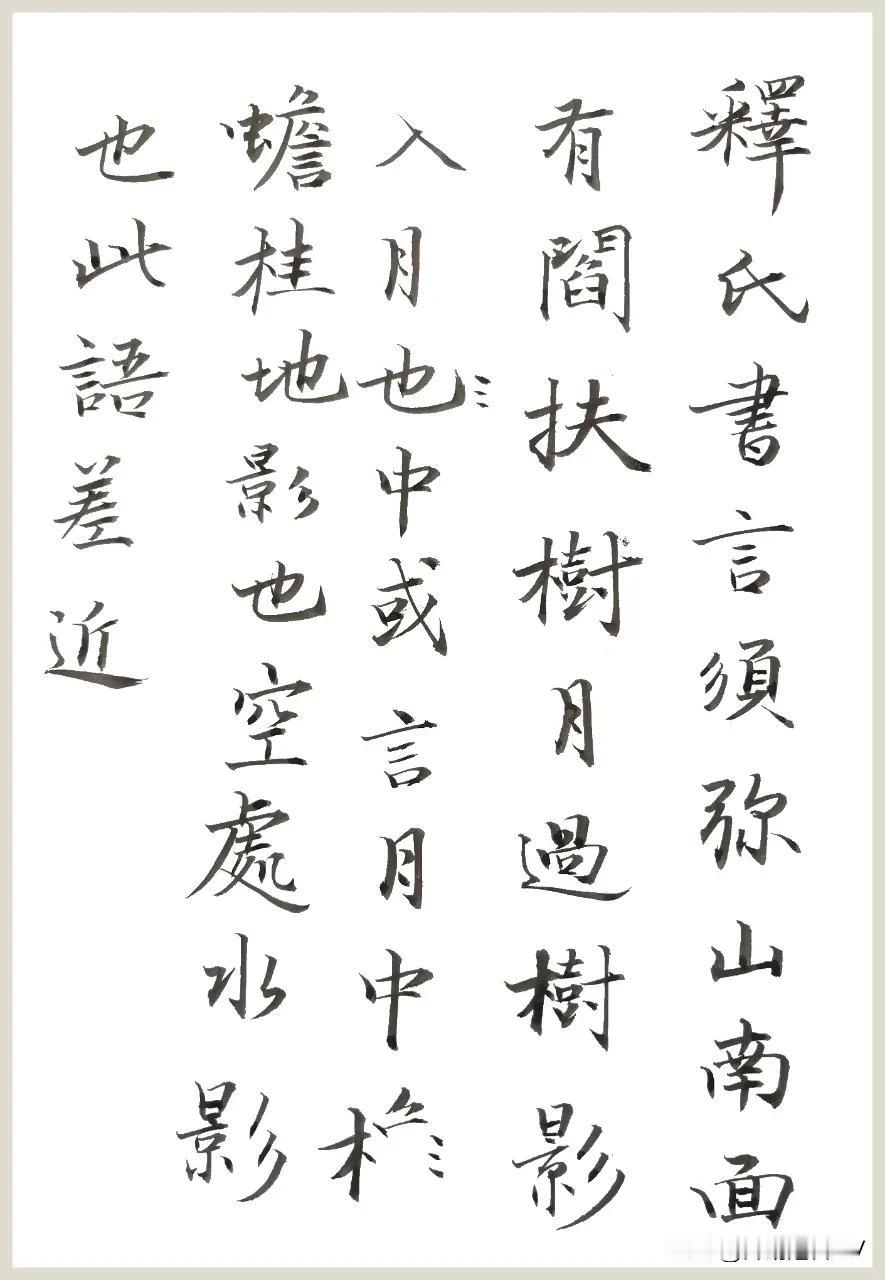 釋氏書言須弥山南面
有閻扶樹月過樹影
入月也中或言月中
蟾桂地影也空處水影
也此語差近